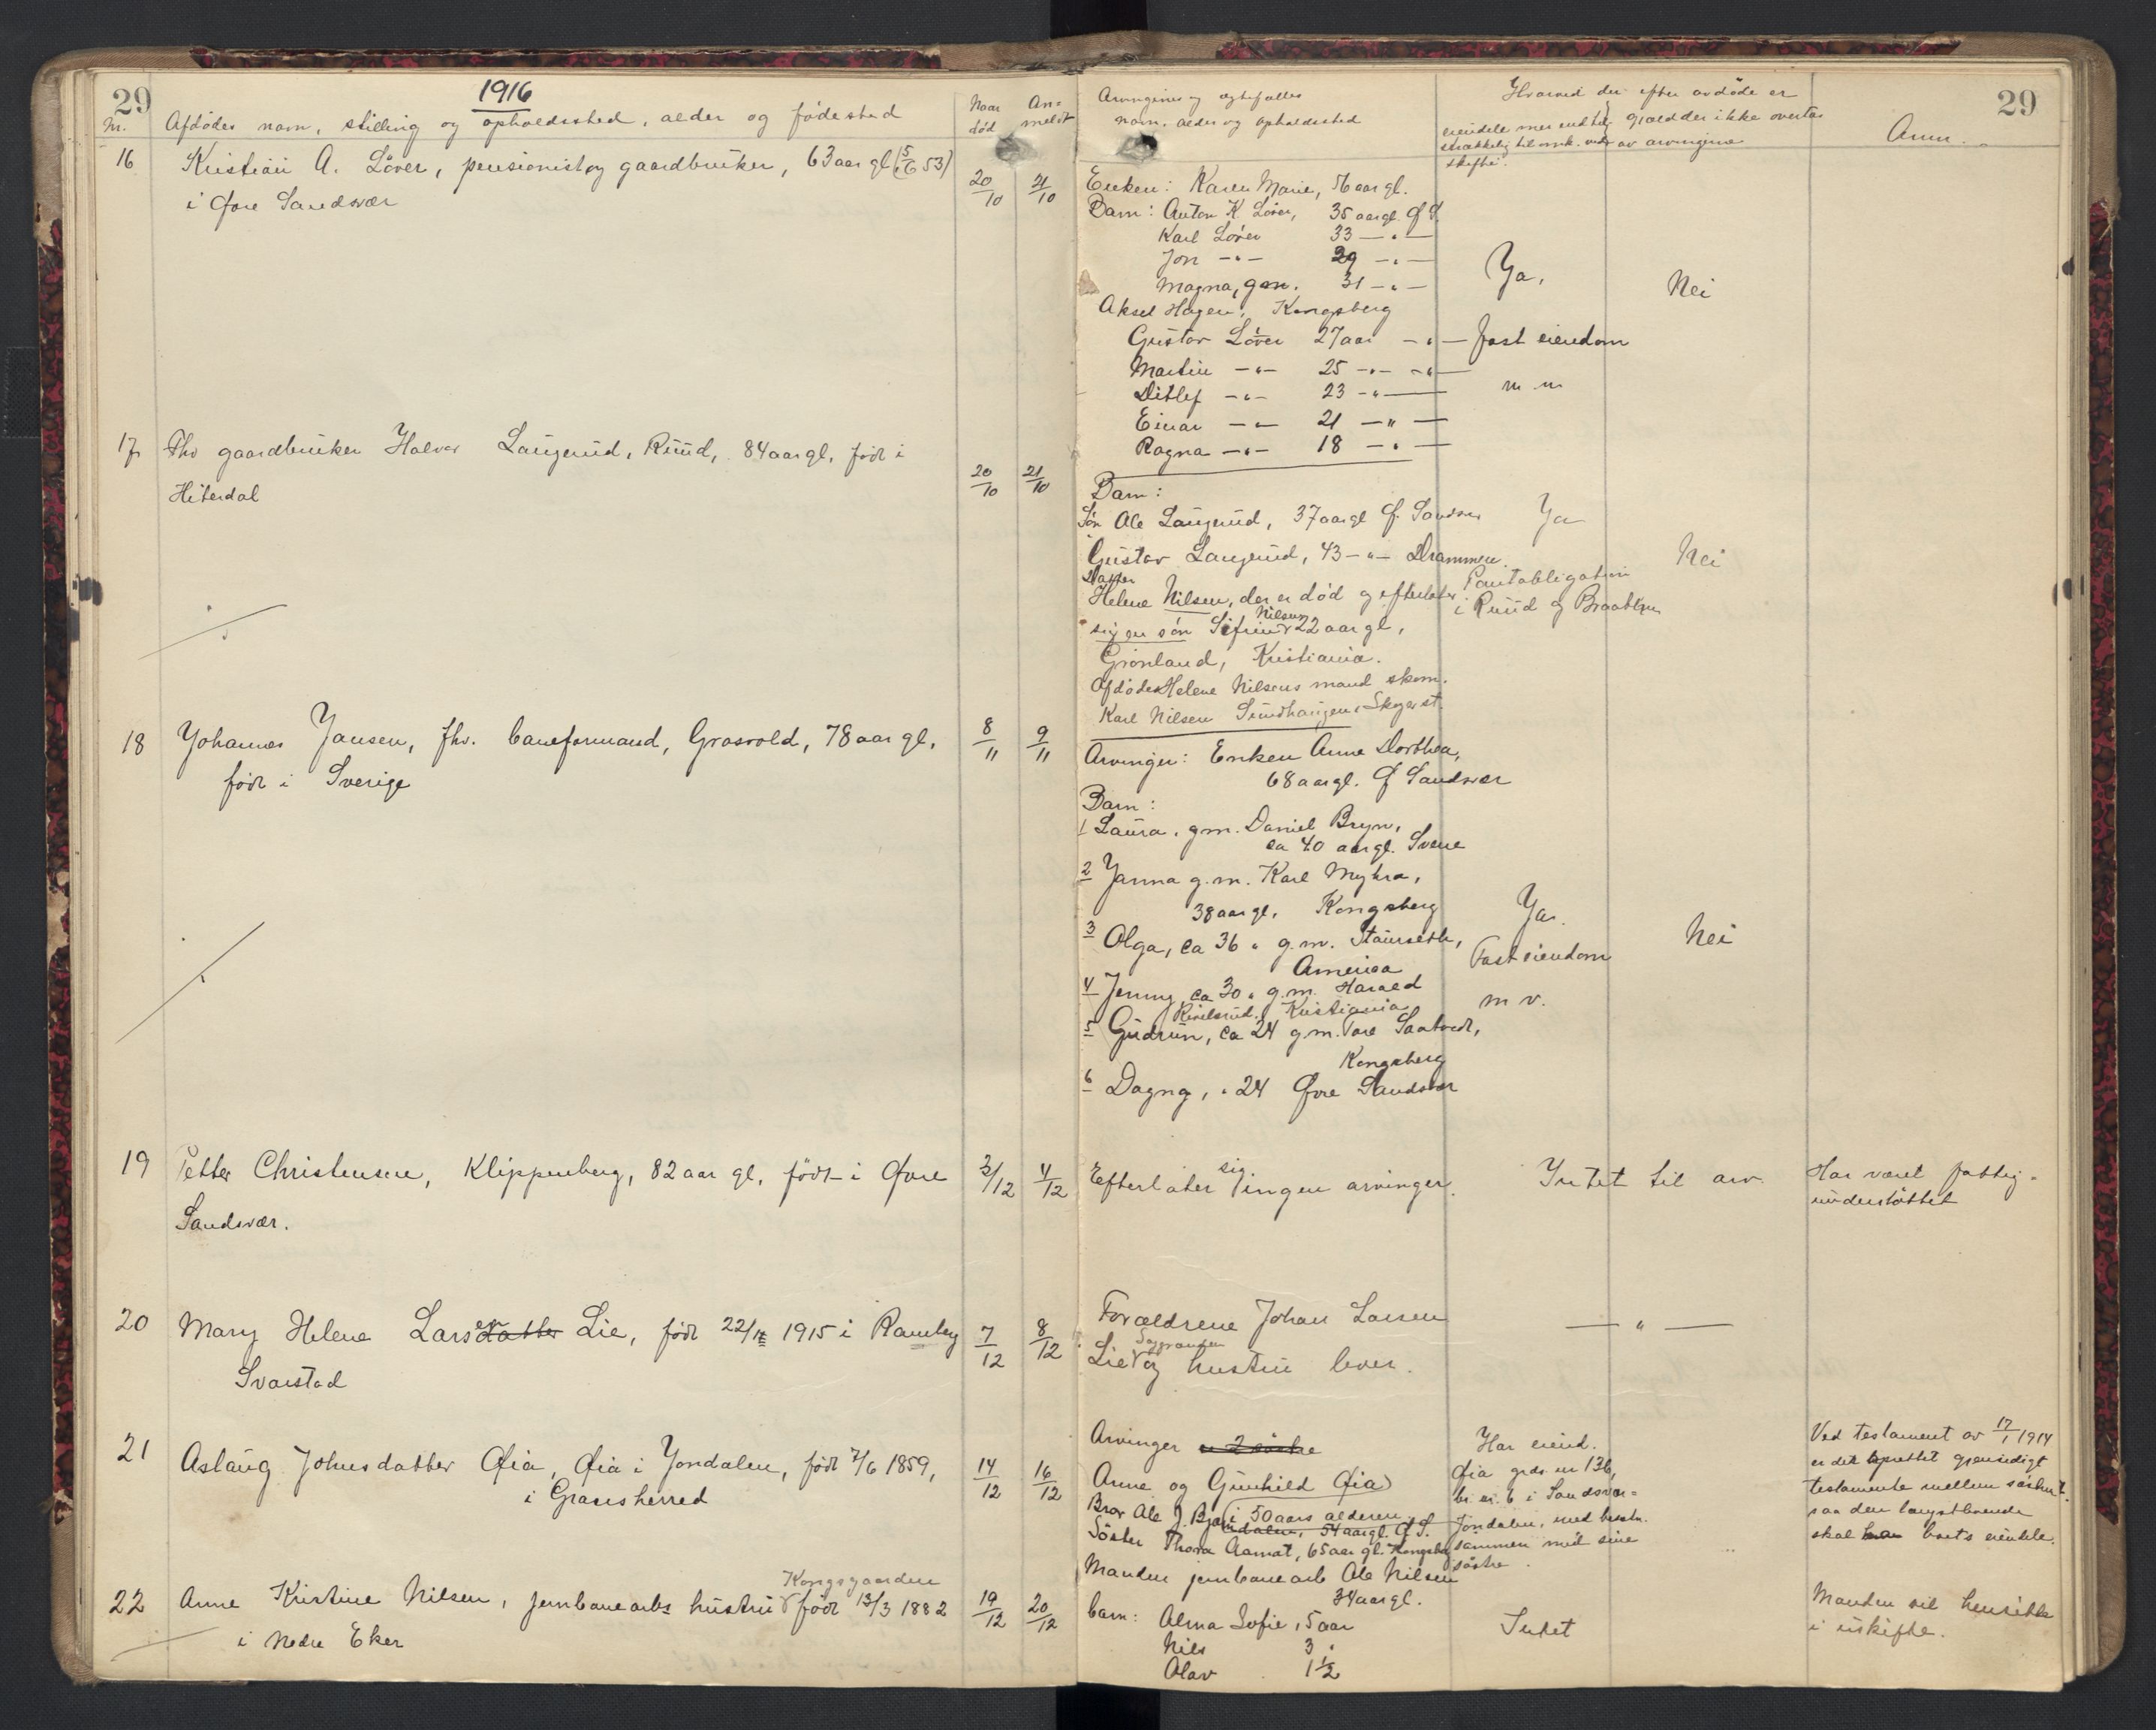 29
1916
29
Nr.
Afdødes navn, stilling og opholdssted, alder og fødested
Naar død
An-meldt
Arvingernes og egtefælles
navn, alder og opholdssted
Hvorved der efter avdøde er
eiendele mer end til- gjæld der ikke overtas
strækkelig til omk. ved av arvingerne
skifte.
Anm.
16
Kristian A. Løver, pensionist og gaardbruker, 63 aar gl (5/6 53)
i Øvre Sandsvær
20/10
21/10
Enken: Karen Marie, 56 aar gl.
Barn: Anton K. Løver, 35 aar gl. Ø S.
Karl Løver 33 — " —
Jon — " — 29 — " —
Magna, gm. 31 — " —
Aksel Hagen, Kongsberg
Gustav Løver 27 aar — " —
Martin — " — 25 — " — — " —
Ditlef — " — 23 — " —
Einar — " — 21 — " —
Ragna — " — 18 — " —
Ja,
fast eiendom
m m
Nei
17
Fhv gaardbruker Halvor Laugerud, Ruud, 84 aar gl, født i
Hiterdal
20/10
21/10
Barn:
Søn Ole Laugerud, 37 aar gl Ø. Sandsvær
Gustav Laugerud, 43 — " — Drammen.
Datter
Helene Nilsen, der er død og efterlater
sig en søn Sifrend Nilsen 22 aar gl,
Grønland, Kristiania.
Afdødes Helene Nilsens mand skom.
Karl Nilsen Sundhaugen, Skogerst.
Ja
Pantobligation
i Ruud og Braathen
Nei
18
Johannes Jansen, fhv. baneformand, Grosvold, 78 aar gl,
født i Sverige
8/11
9/11
Arvinger: Enken Anne Dorthea,
68 aar gl. Ø Sandsvær
Barn:
1 Laura, gm. Daniel Bryn,
ca 40 aar gl. Svene
2 Janna g.m. Karl Myhra,
38 aar gl, Kongsberg
3 Olga, ca 36 " g.m. Staurseth,
America
4 Jenny, ca 30 " g.m. Harald
Kristiania
5 Gudrun, ca 24 g.m. Tore Saatvedt,
Kongsberg
6 Dagny, " 24 Øvre Sandsvær
Ja.
Fast eiendom
m v.
Nei
19
Petter Christensen, Klippenberg, 82 aar gl, født i Øvre
Sandsvær.
3/12
4/12
Efterlater sig ingen arvinger.
Intet til arv.
Har været fattig-
understøttet
20
Mary Helene Larsen Lie, født 22/12 1915 i Ramberg
Svarstad
7/12
8/12
Forældrene Johan Larsen
Lie Saggrenden og hustru lever.
— " —
21
Aslaug Johnsdatter Øia, Øia i Jondalen, født 7/6 1859,
i Gransherred
14/12
16/12
Arvinger
Anne og Gunhild Øia
i 50 aars alderen
Bror Ole J. Bjø Jondalen, 54 aar gl. Ø S.
Søster Thora Aamat, 65 aar gl. Kongsbg
Har eiend.
Øia grds nr 136,
br. nr. 6 i Sandsvær-
Jondalen, med besætn.
sammen med sine
søstre.
Ved testament av 17/1 1914
er det oprettet gjensidigt
testamente mellem søstrene.
saa den længstlevende
skal boets eiendele.
22
Anne Kirstine Nilsen, jernbanearbs hustru Kongsgaarden født 13/3 1882
i Nedre Eker
19/12
20/12
Manden jernbanearb Ole Nilsen
34 aar gl.
barn: Alma Sofie, 5 aar
Nils 3 "
Olav 1 1/2
Intet
Manden vil hensidde
i uskifte.